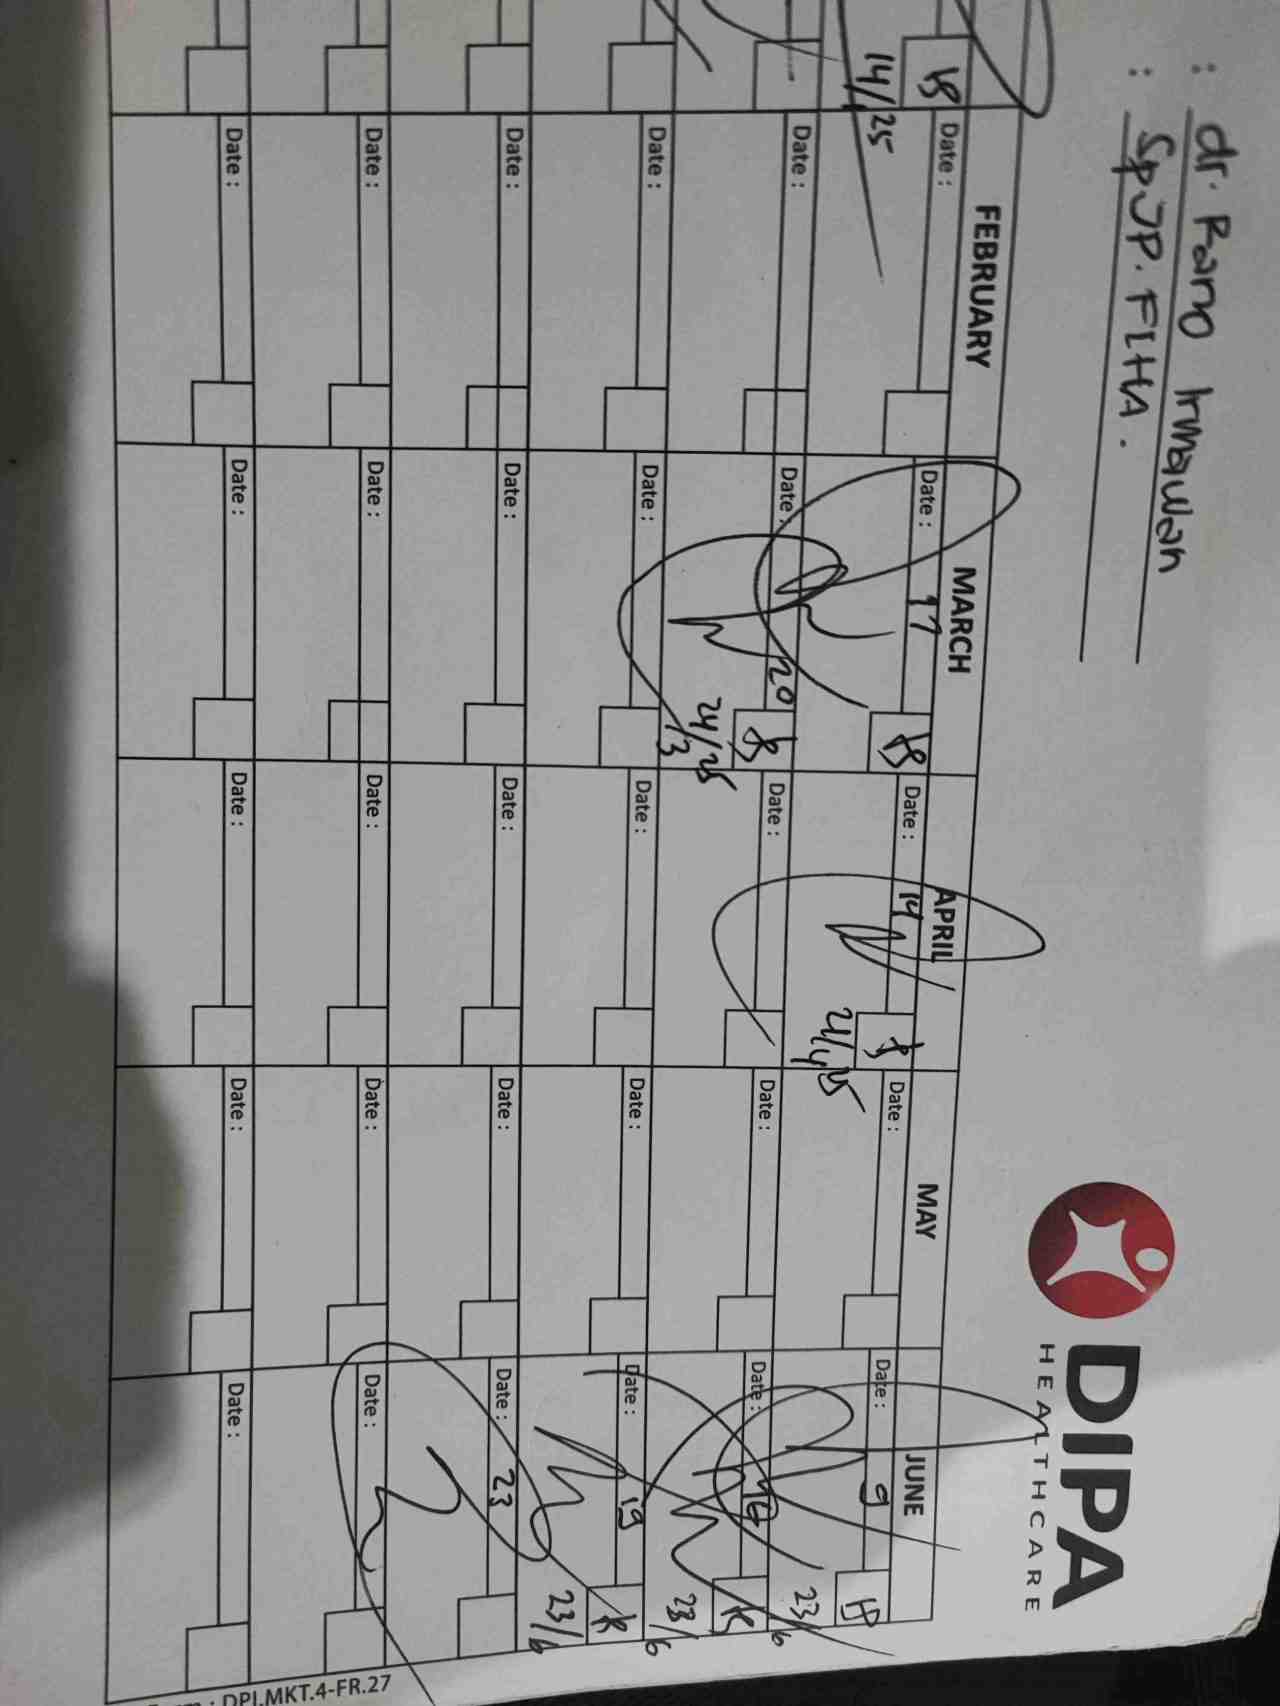 : dr. Rano Irmawan
: SpJP. FIHA.
DIPA
HEALTHCARE
FEBRUARY MARCH APRIL MAY JUNE
Date : Date : 17 Date : 14 Date : Date : 9
14/ 25 21/4 25 23/6
Date : Date : 20 Date : Date : Date : 16
24/25 23/6
/3
Date : Date : Date : Date : Date : 19
23/6
Date : Date : Date : Date : Date : 23
Date : Date : Date : Date : Date :
Date : Date : Date : Date : Date :
: DPI.MKT.4-FR.27